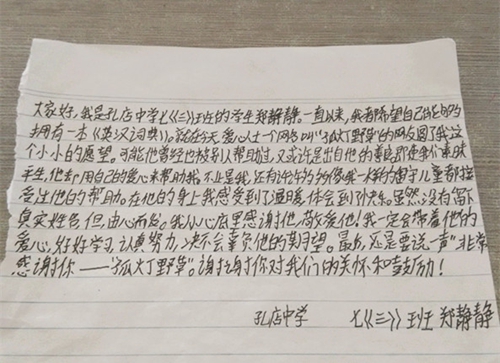 大家好,我是孔店中学七《三》班的学生郑静静。一直以来,我都希望自己能够
拥有一本《英汉词典》。就在今天,爱心人士一个网名叫"孤灯野草"的网友圆了我这
个小小的愿望。可能他曾经也被别人帮助过,又或许是出自他的善良,即使我们素昧
平生,他却用自己的爱心来帮助我。不止是我,还有许许多多的像我一样的留守儿童都接
受过他的帮助。在他的身上我感受到了温暖,体会到了快乐。虽然没有留下
真实姓名,但,由心而发。我从心底里感谢他,敬爱他!我一定会带着他的
爱心,好好学习,认真努力,决不会辜负他的期望。最后,还是要说一声"非常
感谢你——"孤灯野草"。谢谢你对我们的关怀和鼓励!
孔店中学 七《三》班 郑静静